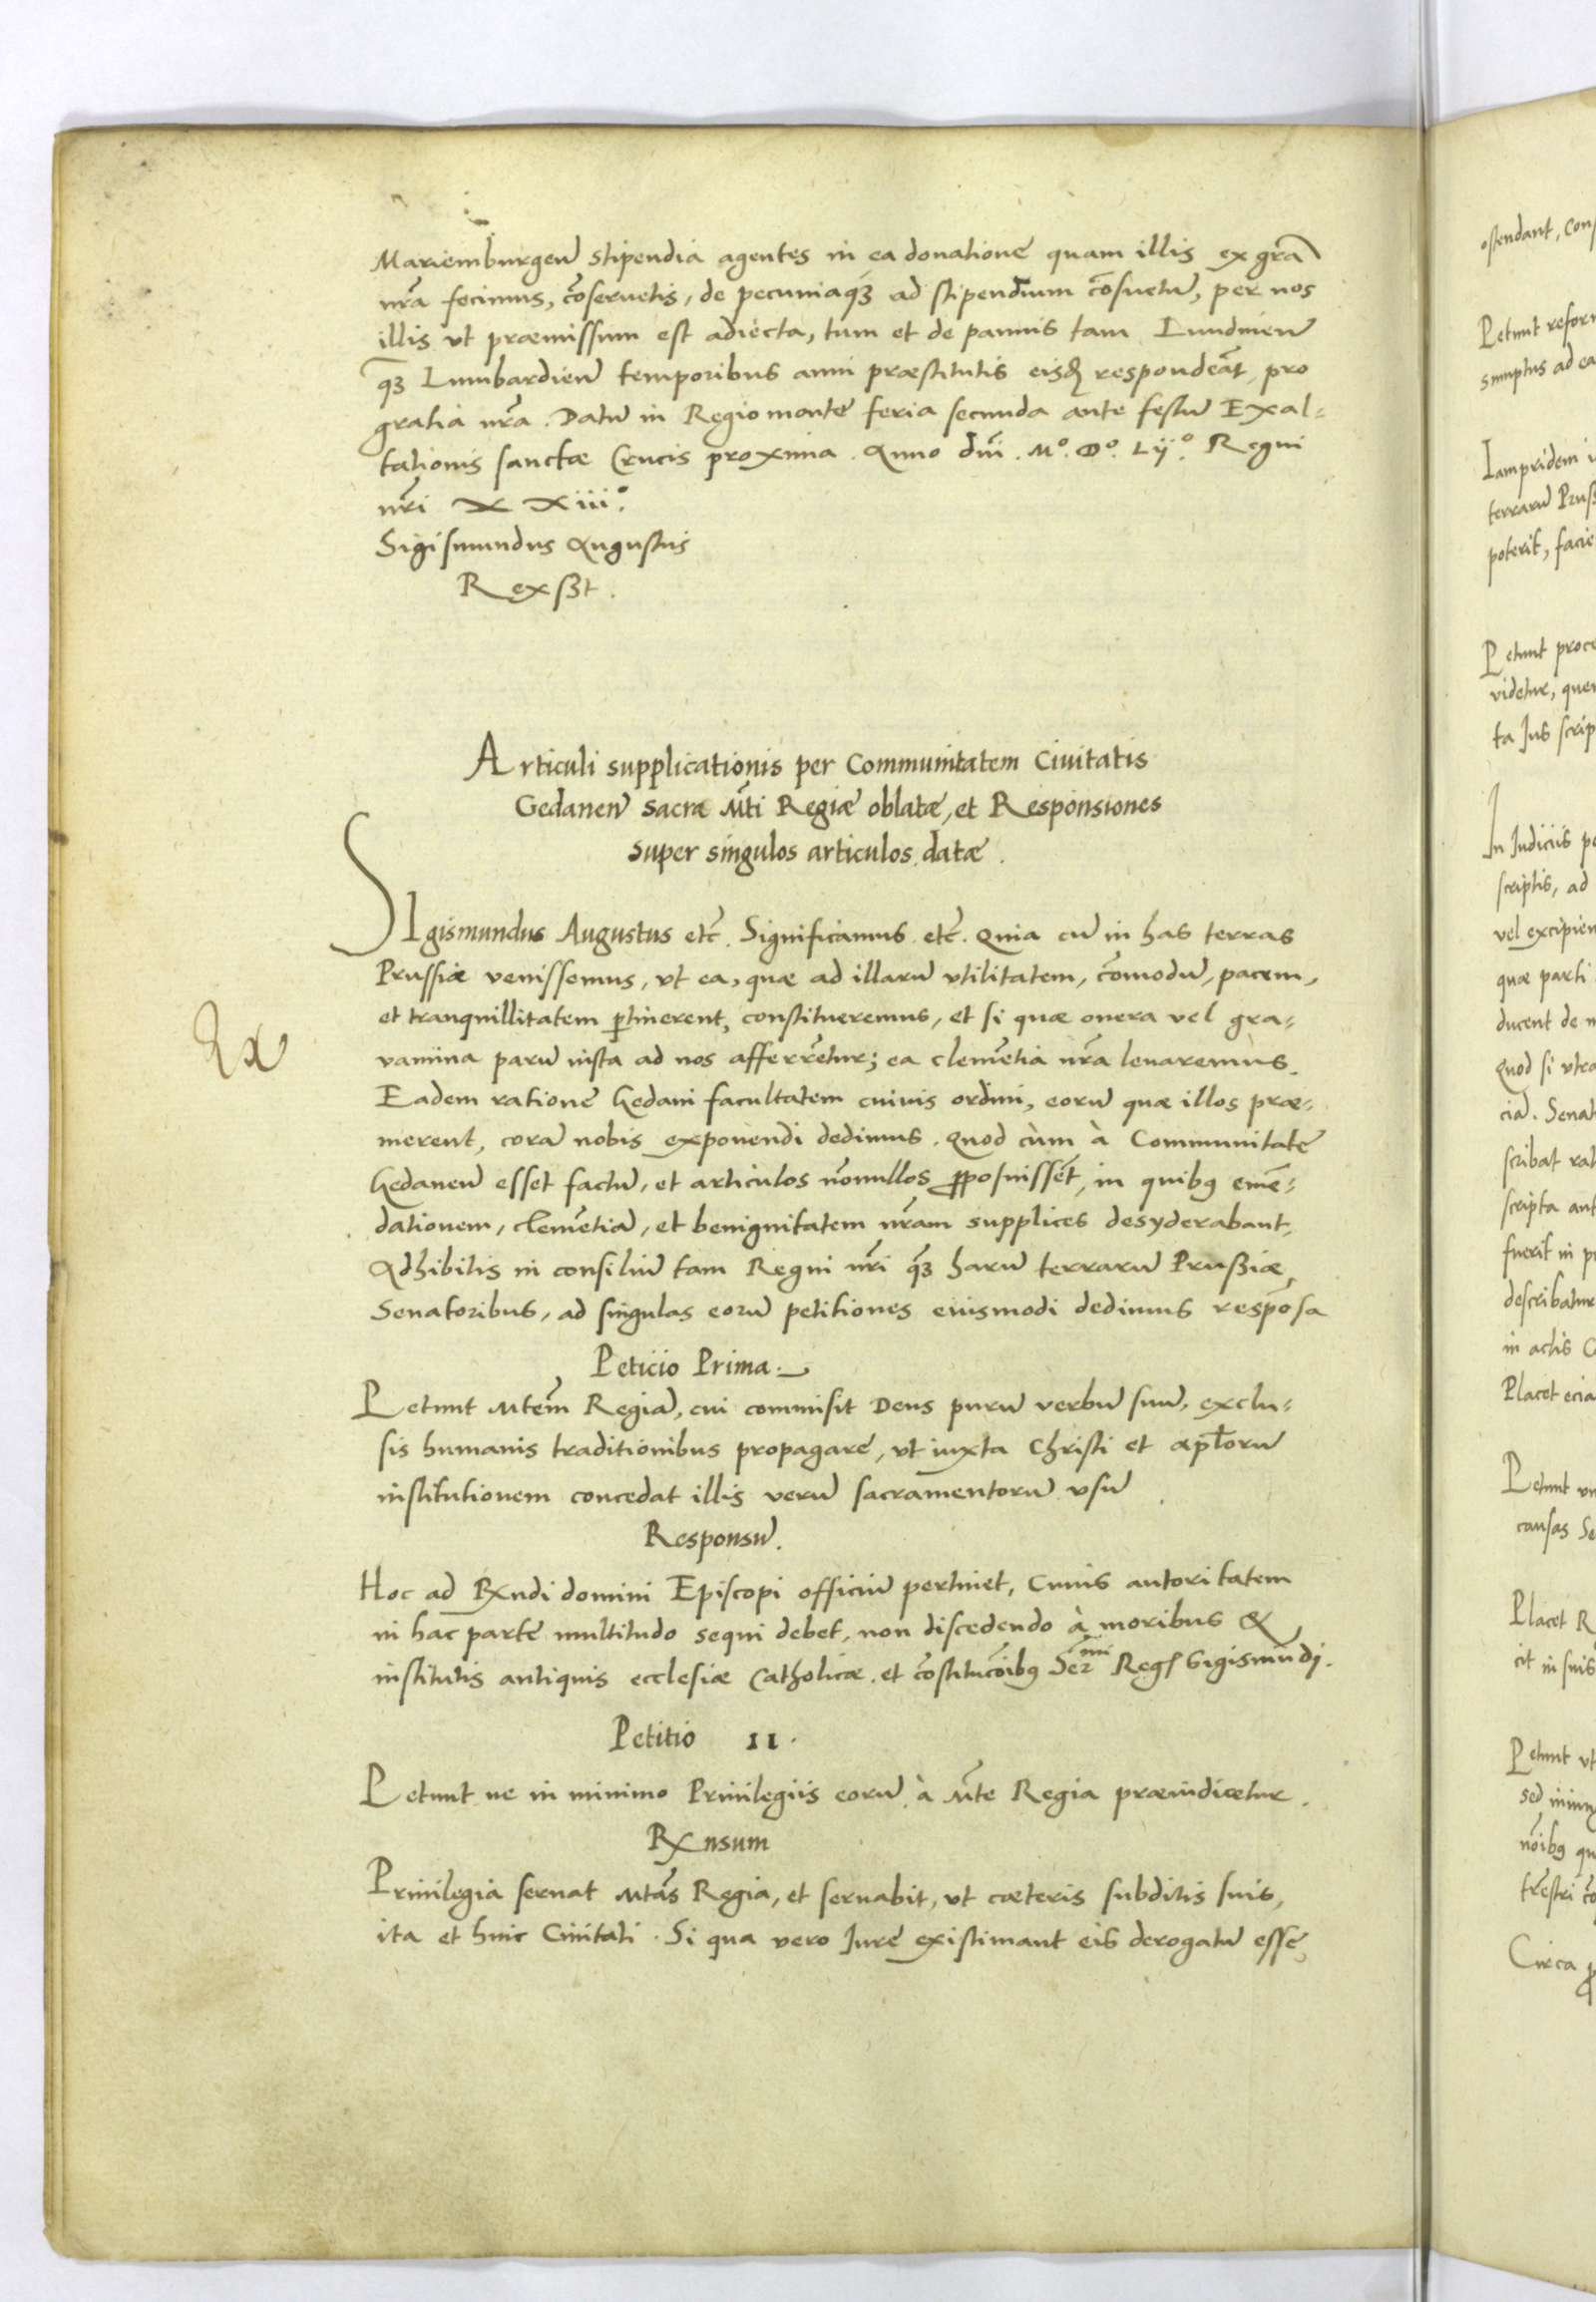 Mariemburgeñ stipendia agentes in ea donatione quam illis ex gra͠
nr̃a fecimus, cõseruetis, de pecuniaq₃ ad stipendium cõsuetũ, per nos
illis vt præmissum est adiecta, tum et de pannis tam Lundineñ
q̃₃ Lumbardieñ temporibus anni præstitutis eisd̃ respondeãt, pro
gratia nr̃a. Datũ in Regiomonte feria secunda ante festũ Exal-
tationis sanctæ Crucis proxima. Anno dñi. M°. D°. Lij°. Regni
nr̃i XXiii°.
Sigismundus Augustus
Rex sszt.
Articuli supplicationis per Communitatem Ciuitatis
Gedaneñ sacræ Mt̃i Regiæ oblatæ, et Responsiones
super singulos articulos datæ.
SIgismundus Augustus etc̃. Significamus etc̃. Quia cũ in has terras
Prussiæ venissemus, vt ea, quæ ad illarũ vtilitatem, cõmodũ, pacem,
et tranquillitatem ꝑtinerent, constitueremus, et si quæ onera vel gra-
vamina parũ iusta ad nos afferrẽtur; ea clemẽtia nr̃a leuaremus.
Ex
Eadem ratione Gedani facultatem cuiuis ordini, eorũ quæ illos præ-
merent, corã nobis exponendi dedimus. Quod cùm à Communitate
Gedaneñ esset factũ, et articulos nõnullos ꝓposuissẽt, in quibꝰ emẽ-
dationem, clemẽtiã, et benignitatem nr̃am supplices desyderabant.
Adhibitis in consiliũ tam Regni nr̃i q̃₃ harũ terrarũ Prußiæ,
Senatoribus, ad singulas eorũ petitiones eiusmodi dedimus respõsa
Peticio Prima.
Petunt Mtẽm Regiã, cui commisit Deus purũ verbũ suũ, exclu-
sis humanis traditionibus propagare, vt iuxta Christi et apl̃orũ
institutionem concedat illis verũ sacramentorũ vsũ
Responsũ.
Hoc ad Rx̃ndi domini Episcopi officiũ pertinet, Cuius autoritatem
in hac parte multitudo sequi debet, non discedendo à moribus &
institutis antiquis ecclesiæ Catholicæ. et cõstitucõibꝰ Ser̃mi Reg̃ Sigismũdi.
Petitio II.
Petunt ne in minimo Priuilegiis eorũ à Mt̃e Regia præiudicetur.
Rx̃nsum
Priuilegia seruat Mtãs Regia, et seruabit, vt cæteris subditis suis,
ita et huic Ciuitati. Si qua vero Iure existimant eis derogatũ esse,
ostendant,
Petunt
sumptus ad
Iampridem
terrarũ
poterit,
Petunt
videtur,
ta Jus
In Judiciis
scriptis, ad
vel
quæ parti
ducent de
Quod si
ciã.
scribat
scripta
fuerit in
describatur
in actis
Placet
Petunt
causas
Placet
cit in suis
Petunt vt
sed
Circa